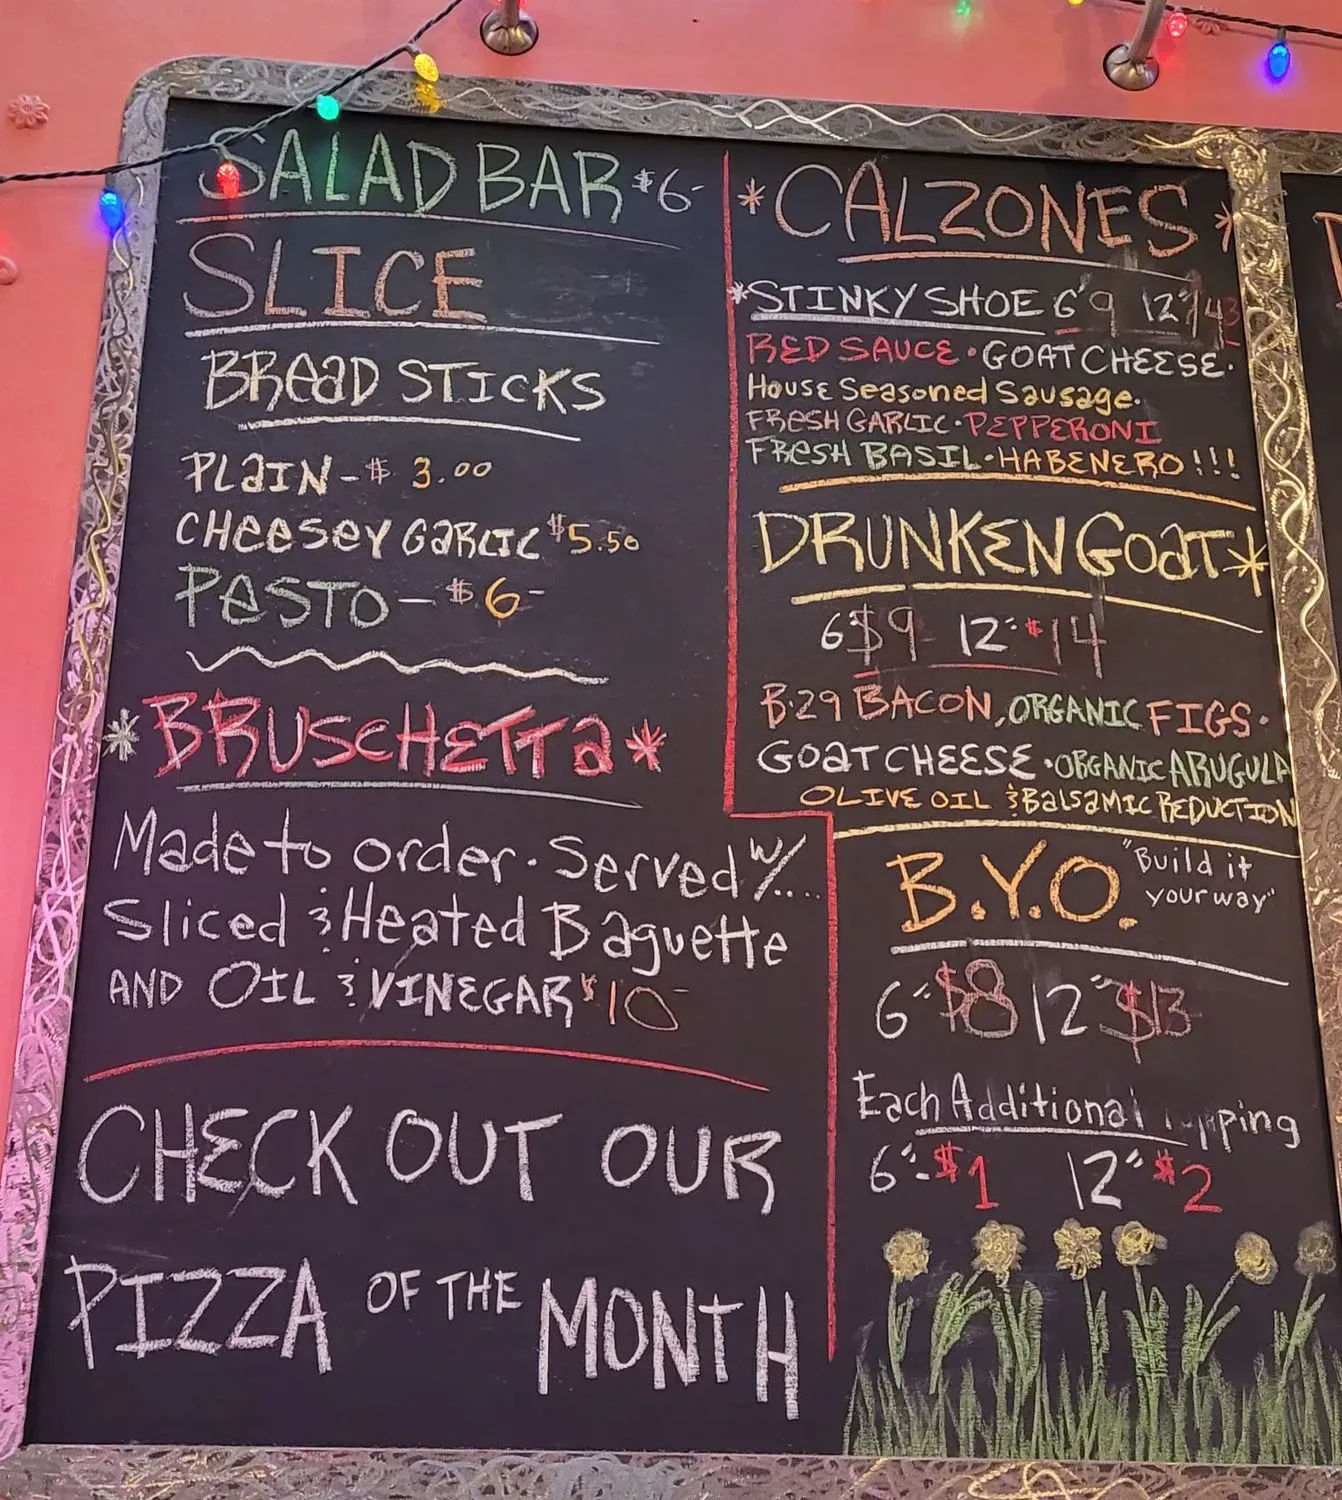 SALAD BAR $6-
SLICE
BREAD STICKS
PLAIN - $3.00
CHEESEY GARLIC $5.50
PESTO - $6-
*BRUSCHETTA*
Made to order · Served w/....
Sliced & Heated Baguette
AND OIL & VINEGAR $10-
CHECK OUT OUR
PIZZA OF THE MONTH
*CALZONES*
*STINKY SHOE 6" 9 12"
RED SAUCE · GOAT CHEESE ·
House Seasoned Sausage.
FRESH GARLIC · PEPPERONI
FRESH BASIL · HABENERO!!!
DRUNKEN GOAT*
6" $9 12" $14
B·29 BACON, ORGANIC FIGS ·
GOAT CHEESE · ORGANIC ARUGULA
OLIVE OIL & BALSAMIC REDUCTION
B.Y.O. "Build it
your way"
6" $8 12" $13
Each Additional
6" - $1 12" $2